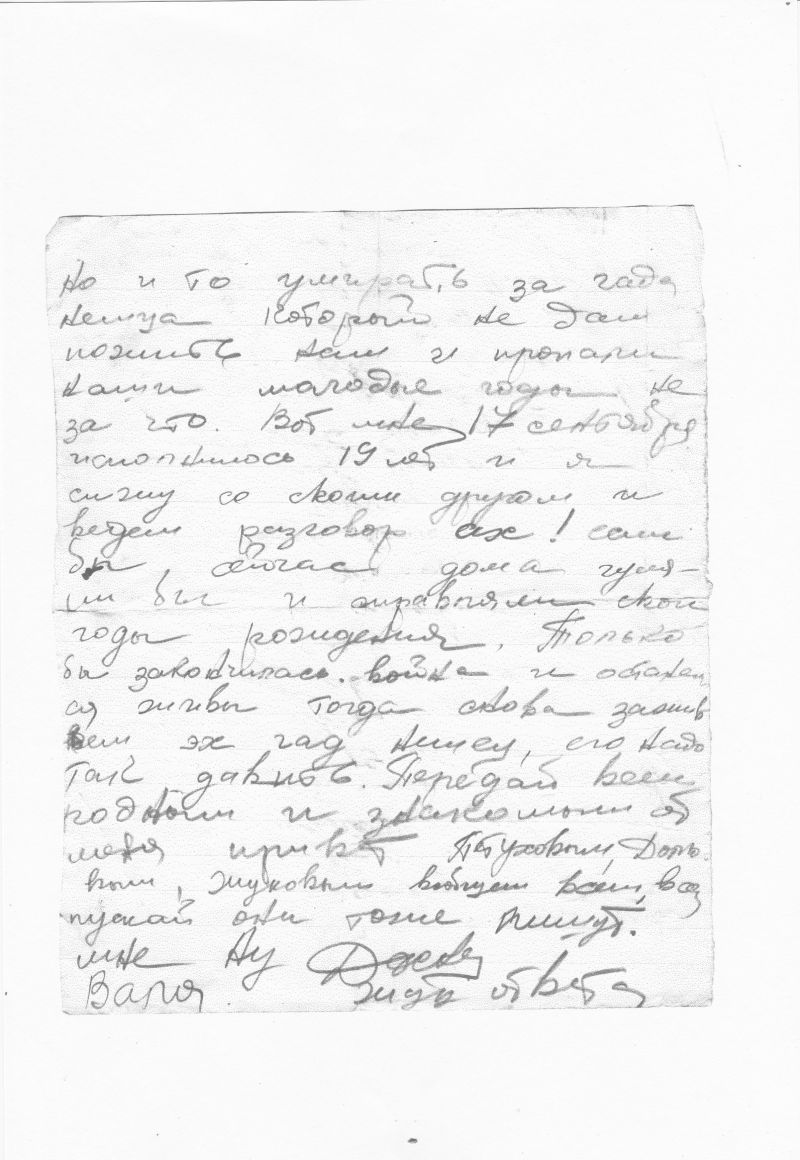 но и то умирать за гада
немца который не дал
пожить нам и пропали
наши молодые годы не
за что. Вот мне 17 сентября
исполнилось 19 лет и я
сижу со своим другом и
ведем разговор ах! если
бы, сейчас дома гуля-
ли бы и справляли свои
годы рождения. Только
бы закончилась война и останем
ся живы тогда снова зажив
вем эх гад немец, его надо
так давить. Передай всем
родным и знакомым от
меня привет Петуховым,
вым, Жуковым вобщем всем, всем
пускай они тоже пишут.
мне Ну
Валя жду ответа